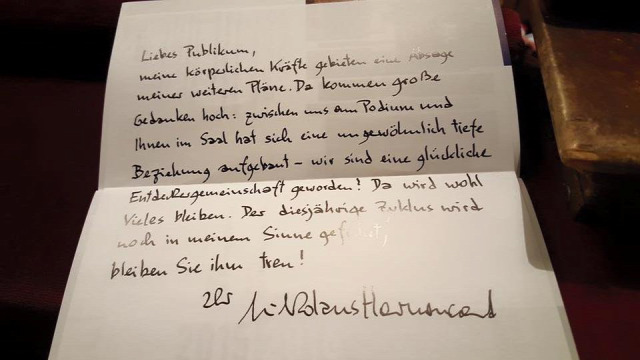 Liebes Publikum,
meine körperlichen Kräfte gebieten eine Absage
meiner weiteren Pläne. Da kommen große
Gedanken hoch: zwischen uns am Podium und
Ihnen im Saal hat sich eine ungewöhnlich tiefe
Beziehung aufgebaut – wir sind eine glückliche
Entdeckergemeinschaft geworden! Da wird wohl
Vieles bleiben. Der diesjährige Zyklus wird
noch in meinem Sinne geführt,
bleiben Sie ihm treu!
Ihr Nikolaus Harnoncourt